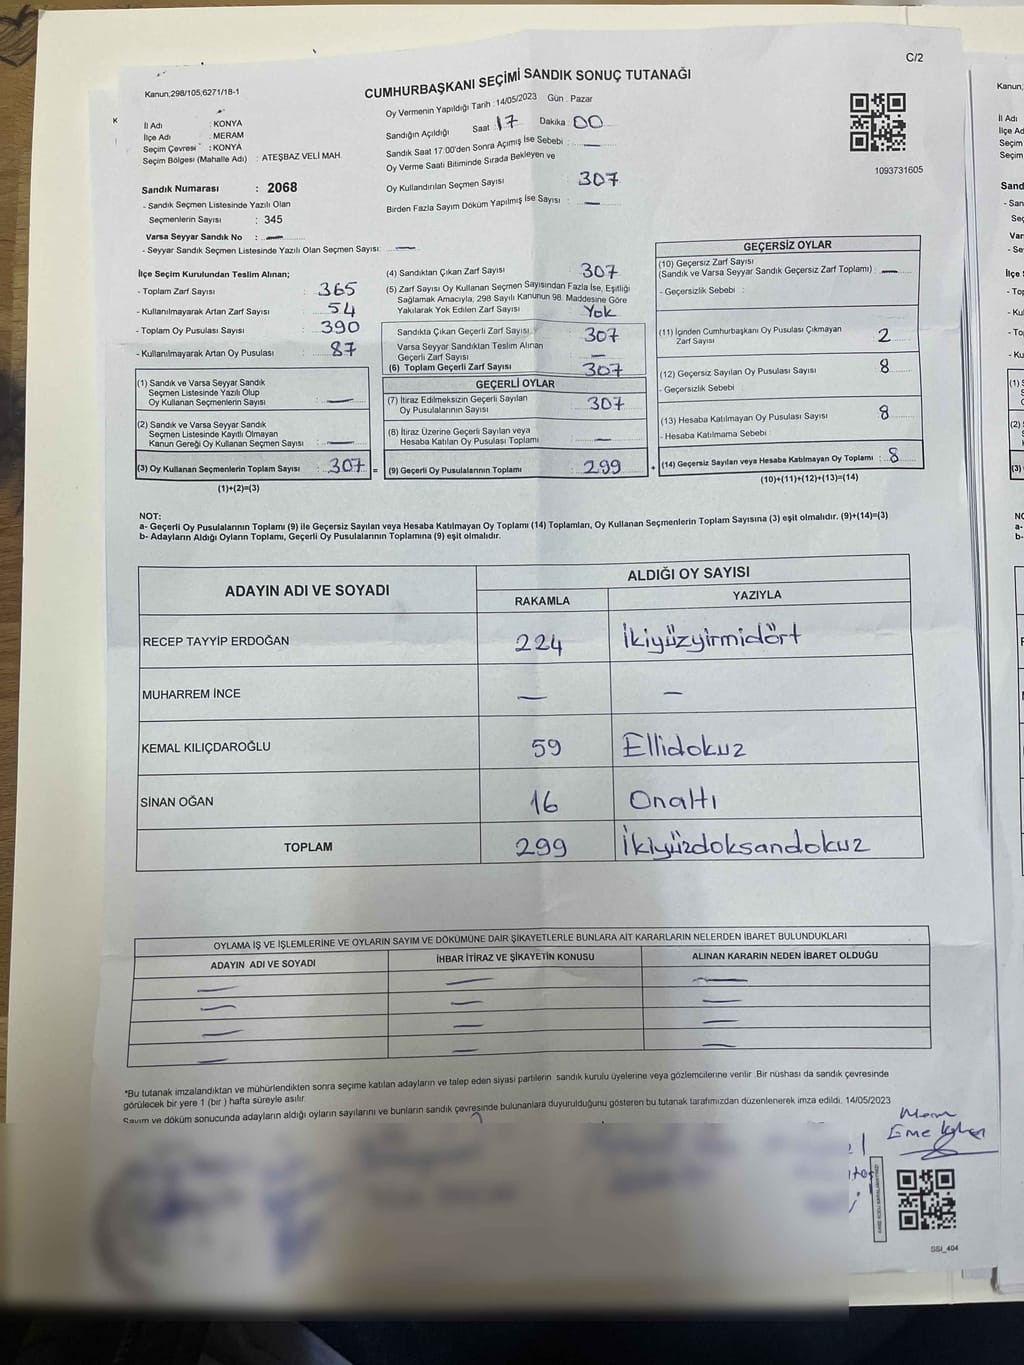 C/2
Kanun,298/105,6271/18-1
CUMHURBAŞKANI SEÇİMİ SANDIK SONUÇ TUTANAĞI
Oy Vermenin Yapıldığı Tarih : 14/05/2023 Gün : Pazar
İl Adı : KONYA
İlçe Adı : MERAM
Seçim Çevresi : KONYA
Seçim Bölgesi (Mahalle Adı) : ATEŞBAZ VELİ MAH.
Sandığın Açıldığı Saat : 17 Dakika : 00
Sandık Saat 17:00'den Sonra Açımış İse Sebebi : —
Oy Verme Saati Bitiminde Sırada Bekleyen ve
Oy Kullandırılan Seçmen Sayısı 307
Birden Fazla Sayım Döküm Yapılmış İse Sayısı : —
1093731605
Sandık Numarası : 2068
- Sandık Seçmen Listesinde Yazılı Olan
Seçmenlerin Sayısı : 345
Varsa Seyyar Sandık No : —
- Seyyar Sandık Seçmen Listesinde Yazılı Olan Seçmen Sayısı: —
İlçe Seçim Kurulundan Teslim Alınan;
- Toplam Zarf Sayısı : 365
- Kullanılmayarak Artan Zarf Sayısı : 54
- Toplam Oy Pusulası Sayısı : 390
- Kullanılmayarak Artan Oy Pusulası : 87
(1) Sandık ve Varsa Seyyar Sandık
Seçmen Listesinde Yazılı Olup
Oy Kullanan Seçmenlerin Sayısı : —
(2) Sandık ve Varsa Seyyar Sandık
Seçmen Listesinde Kayıtlı Olmayan
Kanun Gereği Oy Kullanan Seçmen Sayısı : —
(3) Oy Kullanan Seçmenlerin Toplam Sayısı : 307 =
(1)+(2)=(3)
(4) Sandıktan Çıkan Zarf Sayısı : 307
(5) Zarf Sayısı Oy Kullanan Seçmen Sayısından Fazla İse, Eşitliği
Sağlamak Amacıyla, 298 Sayılı Kanunun 98. Maddesine Göre
Yakılarak Yok Edilen Zarf Sayısı : Yok
Sandıkta Çıkan Geçerli Zarf Sayısı : 307
Varsa Seyyar Sandıktan Teslim Alınan
Geçerli Zarf Sayısı : —
(6) Toplam Geçerli Zarf Sayısı : 307
GEÇERLİ OYLAR
(7) İtiraz Edilmeksizin Geçerli Sayılan
Oy Pusulalarının Sayısı : 307
(8) İtiraz Üzerine Geçerli Sayılan veya
Hesaba Katılan Oy Pusulası Toplamı : —
(9) Geçerli Oy Pusulalarının Toplamı : 299 +
GEÇERSİZ OYLAR
(10) Geçersiz Zarf Sayısı
(Sandık ve Varsa Seyyar Sandık Geçersiz Zarf Toplamı) : —
- Geçersizlik Sebebi :
(11) İçinden Cumhurbaşkanı Oy Pusulası Çıkmayan
Zarf Sayısı : 2
(12) Geçersiz Sayılan Oy Pusulası Sayısı : 8
- Geçersizlik Sebebi :
(13) Hesaba Katılmayan Oy Pusulası Sayısı : 8
- Hesaba Katılmama Sebebi :
(14) Geçersiz Sayılan veya Hesaba Katılmayan Oy Toplamı : 8
(10)+(11)+(12)+(13)=(14)
NOT:
a- Geçerli Oy Pusulalarının Toplamı (9) ile Geçersiz Sayılan veya Hesaba Katılmayan Oy Toplamı (14) Toplamları, Oy Kullanan Seçmenlerin Toplam Sayısına (3) eşit olmalıdır. (9)+(14)=(3)
b- Adayların Aldığı Oyların Toplamı, Geçerli Oy Pusulalarının Toplamına (9) eşit olmalıdır.
ADAYIN ADI VE SOYADI ALDIĞI OY SAYISI
RAKAMLA YAZIYLA
RECEP TAYYİP ERDOĞAN 224 İkiyüzyirmidört
MUHARREM İNCE — —
KEMAL KILIÇDAROĞLU 59 Ellidokuz
SİNAN OĞAN 16 Onaltı
TOPLAM 299 İkiyüzdoksandokuz
OYLAMA İŞ VE İŞLEMLERİNE VE OYLARIN SAYIM VE DÖKÜMÜNE DAİR ŞİKAYETLERLE BUNLARA AİT KARARLARIN NELERDEN İBARET BULUNDUKLARI
ADAYIN ADI VE SOYADI İHBAR İTİRAZ VE ŞİKAYETİN KONUSU ALINAN KARARIN NEDEN İBARET OLDUĞU
— — —
— — —
— — —
— — —
*Bu tutanak imzalandıktan ve mühürlendikten sonra seçime katılan adayların ve talep eden siyasi partilerin sandık kurulu üyelerine veya gözlemcilerine verilir .Bir nüshası da sandık çevresinde
görülecek bir yere 1 (bir ) hafta süreyle asılır.
Sayım ve döküm sonucunda adayların aldığı oyların sayılarını ve bunların sandık çevresinde bulunanlara duyurulduğunu gösteren bu tutanak tarafımızdan düzenlenerek imza edildi. 14/05/2023
SSI_404